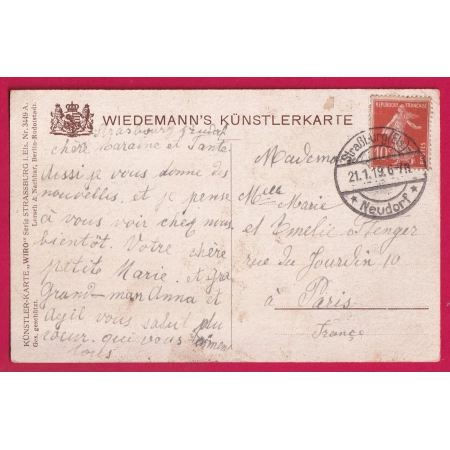 WIEDEMANN'S KÜNSTLERKARTE
KÜNSTLER-KARTE „WIRO" Serie STRASSBURG i. Els. Nr. 3449 A.
Ges. geschützt. Lorsch & Nachbar, Berlin-Rudolstadt.
Strasbourg
chère Maraine et Tante
Aussi je vous donne des
nouvelles, et je pense
à vous voir chez nous
bientôt. Votre chère
petite Marie. et
Grand-man Anna et
vous salut du
cœur qui vous
REPUBLIQUE FRANÇAISE
10
21.1.19. 6-7 N.
* Neudorf *
Mlle Marie
et Emelie
rue du Jourdin 10
à Paris
France